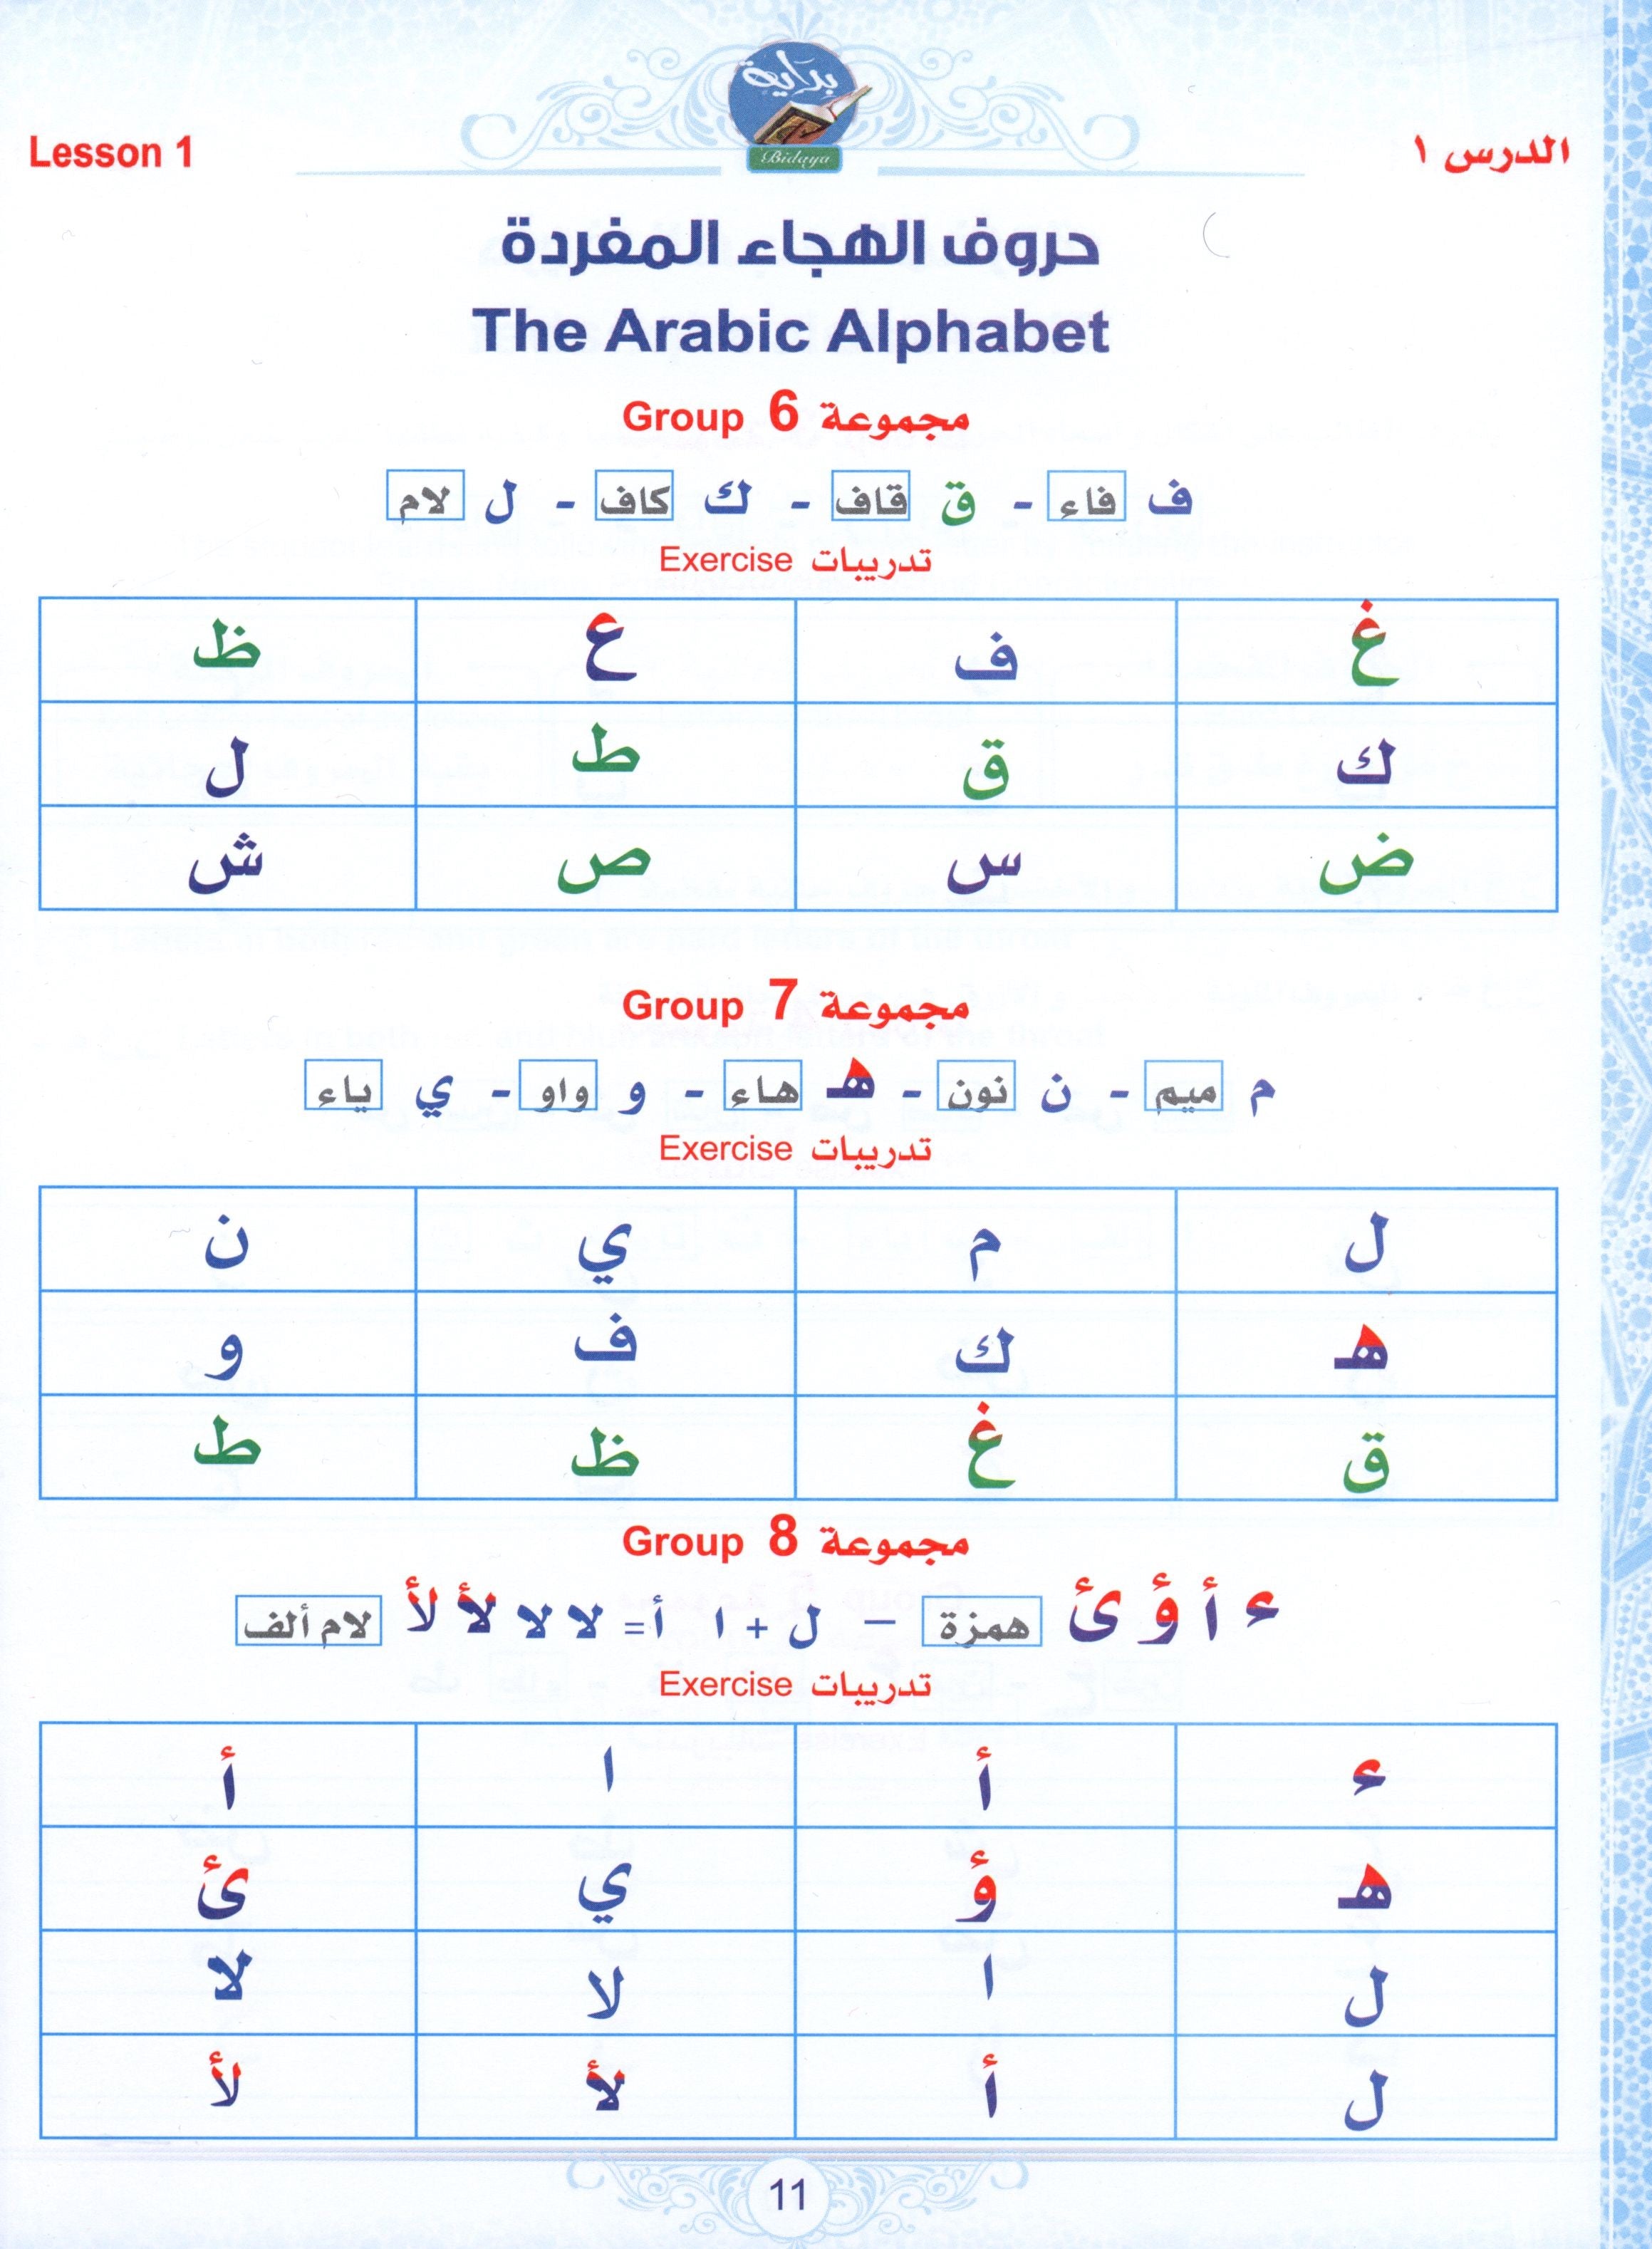 بداية
Bidaya
Lesson 1 الدرس ١
حروف الهجاء المفردة
The Arabic Alphabet
Group 6 مجموعة
ف فاء - ق قاف - ك كاف - ل لام
Exercise تدريبات
غ ف ع ظ
ك ق ط ل
ض س ص ش
Group 7 مجموعة
م ميم - ن نون - هـ هاء - و واو - ي ياء
Exercise تدريبات
ل م ي ن
هـ ك ف و
ق غ ظ ط
Group 8 مجموعة
ء أ ؤ ئ همزة – ل + ا أ = لا لا لأ لأ لام ألف
Exercise تدريبات
ء أ ا أ
هـ ؤ ي ئ
ل ا لا لا
ل أ لأ لأ
11